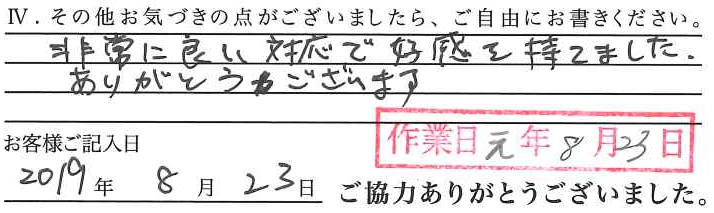 Ⅳ．その他お気づきの点がございましたら、ご自由にお書きください。
非常に良い対応で好感を持てました.
ありがとうございます
お客様ご記入日
作業日元年8月23日
2019年 8月23日
ご協力ありがとうございました。